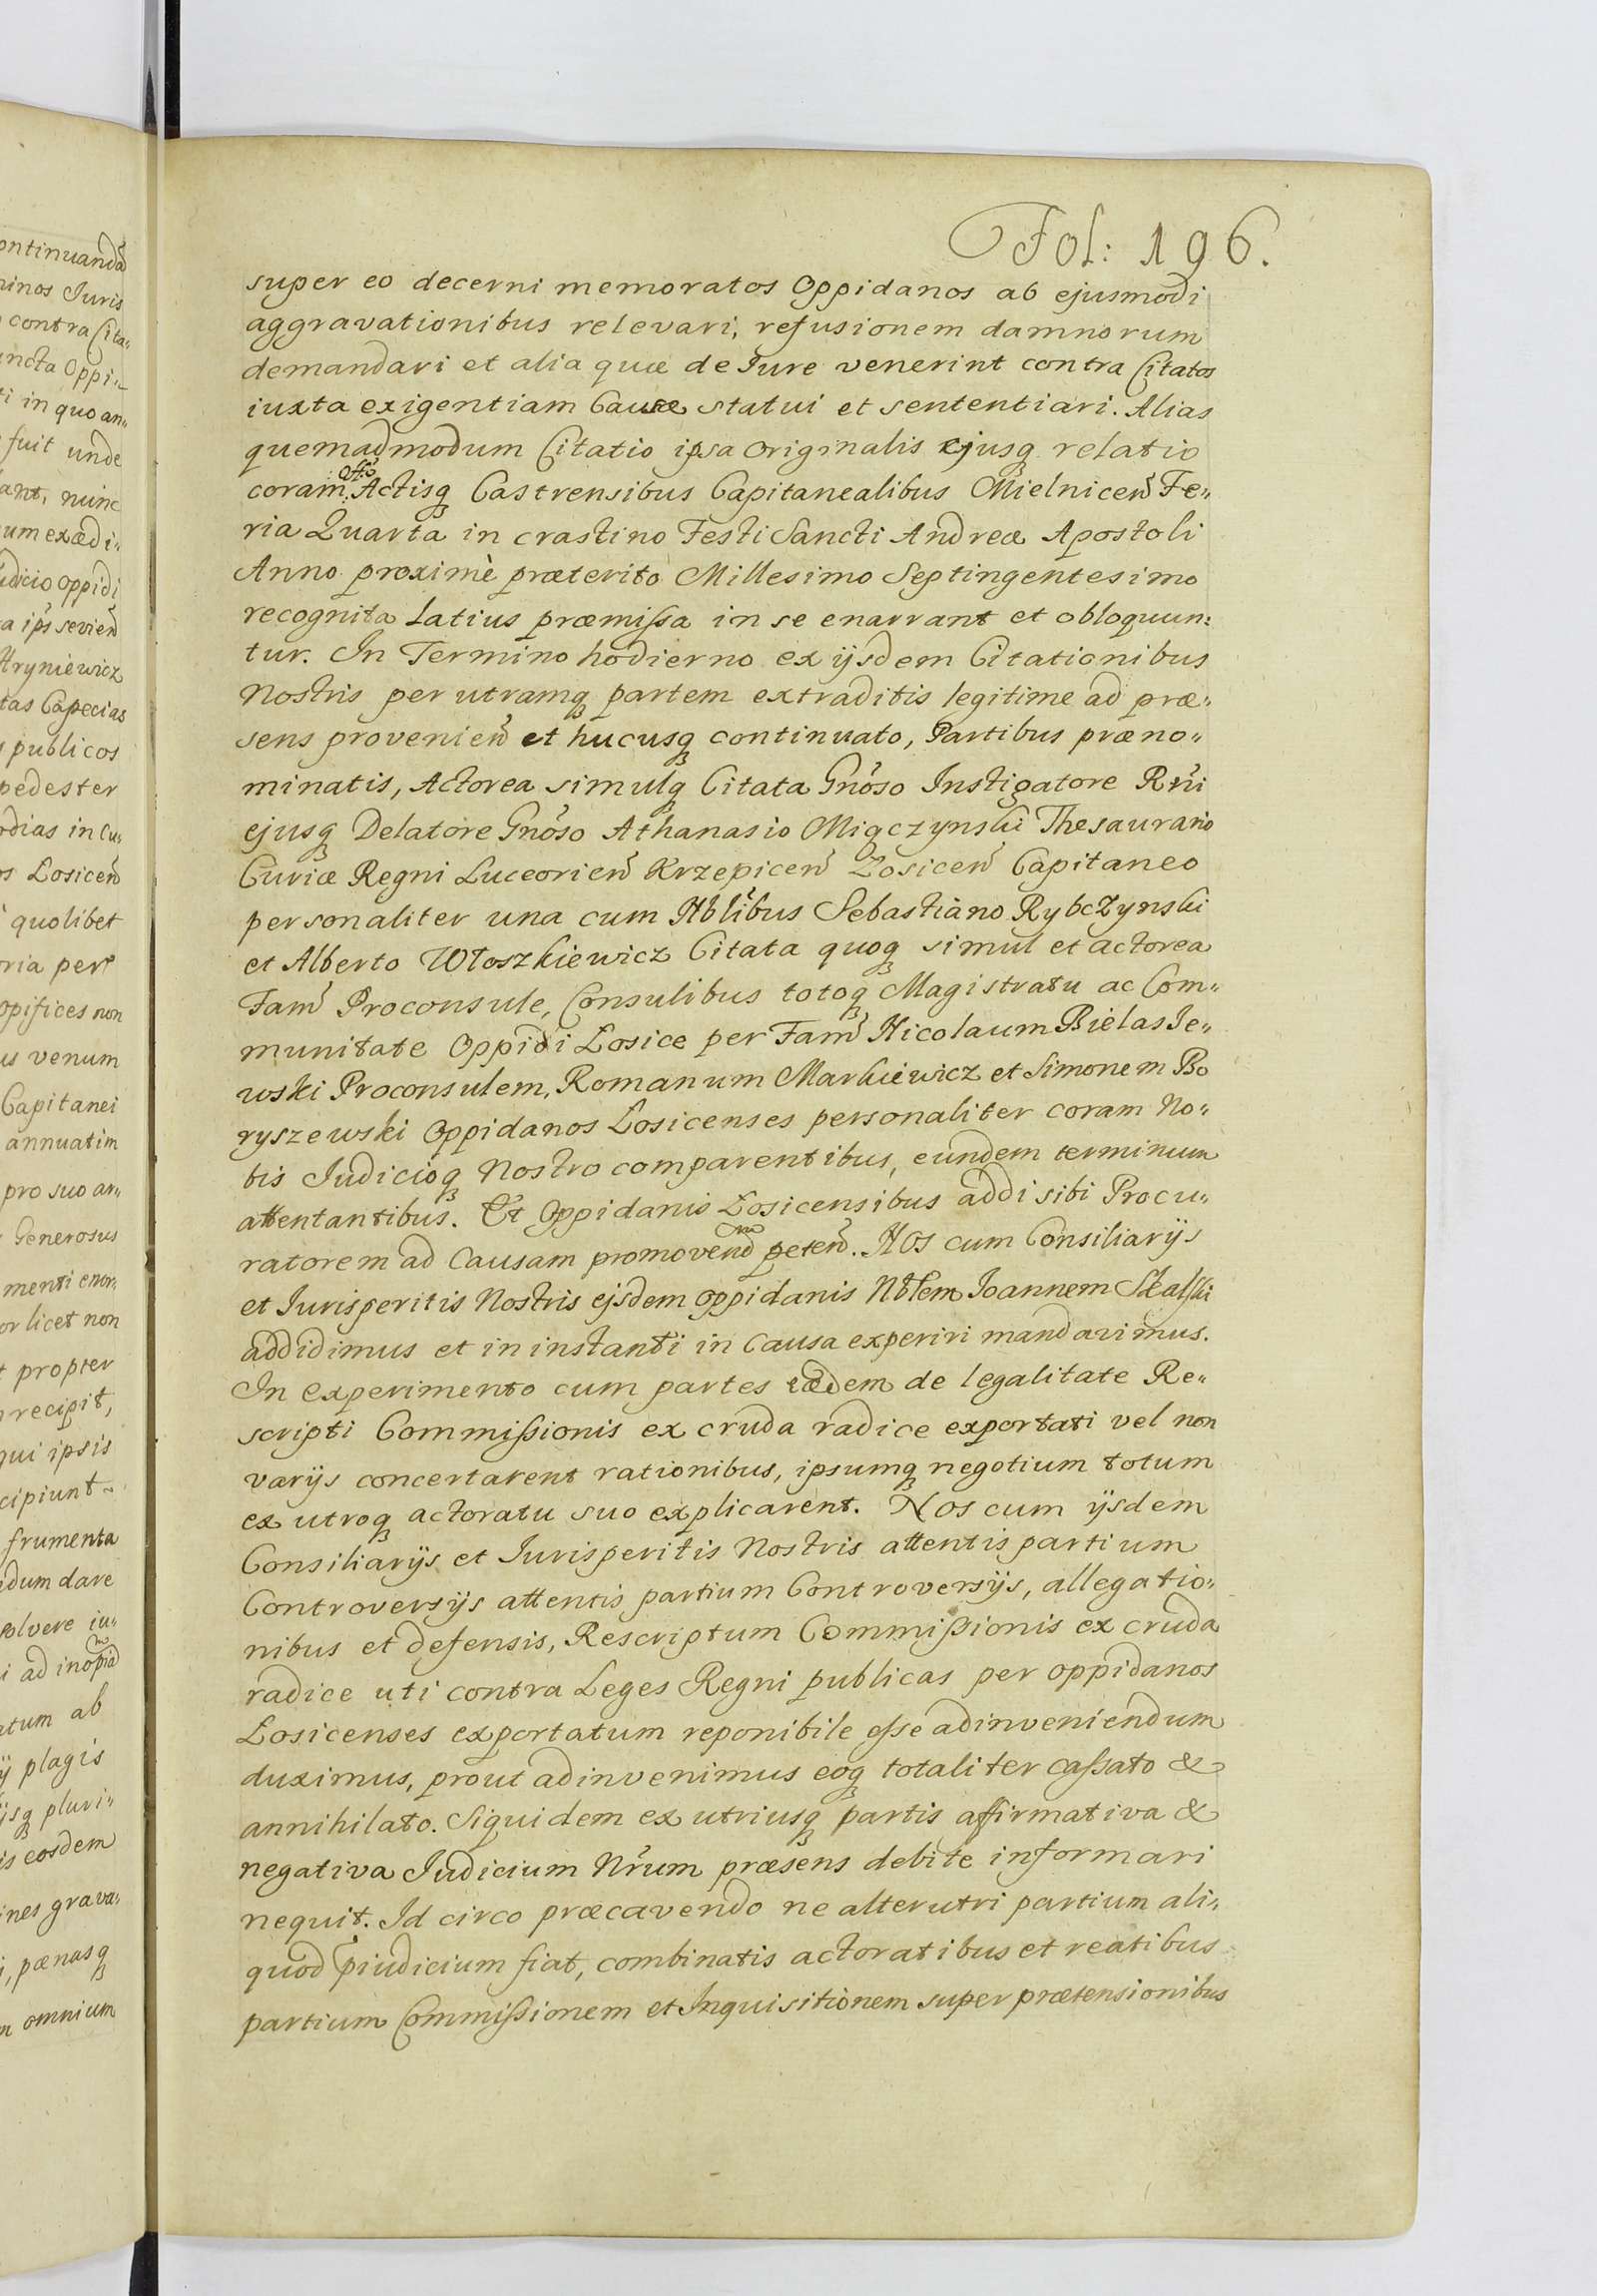 Fol: 196.
super eo decerni memoratos Oppidanos ab ejusmodi
aggravationibus relevari, refusionem damnorum
demandari et alia quæ de Iure venerint contra Citatos
iuxta exigentiam Causæ statui et sententiari. Alias
quemadmodum Citatio ipsa originalis ejusq relatio
Offõ
coram Actisq Castrensibus Capitanealibus Mielniceñ Fe„
ria Quarta in crastino Festi Sancti Andreæ Apostoli
Anno proximè præterito Millesimo Septingentesimo
recognita latius præmissa in se enarrant et obloquun:
tur. In Termino hodierno ex ijsdem Citationibus
Nostris per utramq partem extraditis legitime ad præ„
sens provenieñ et hucusq continuato, Partibus præno„
minatis, Actorea simulq Citata Gnõso Instigatore Rñi
ejusq Delatore Gnõso Athanasio Miączynski Thesaurario
Curiæ Regni Luceorieñ Krzepiceñ Łosiceñ Capitaneo
personaliter una cum Nblĩbus Sebastiano Rybczynski
et Alberto Włoszkiewicz Citata quoq simul et actorea
Fam̃ Proconsule, Consulibus totoq Magistratu ac Com„
munitate Oppidi Łosice per Fam̃ Nicolaum Bielas Ie„
wski Proconsulem, Romanum Markiewicz et Simonem Bo
ryszewski Oppidanos Łosicenses personaliter coram No„
bis Iudicioq Nostro comparentibus, eundem terminum
attentantibus. Et Oppidanis Łosicensibus addi sibi Procu„
ratorem ad Causam promovend̃ peteñ. NOS cum Consiliarijs
et Iurisperitis Nostris ejsdem oppidanis Nblem Ioannem Skalski
addidimus et in instanti in Causa experiri mandavimus.
In experimento cum partes eædem de legalitate Re„
scripti Commissionis ex cruda radice exportati vel non
varijs concertarent rationibus, ipsumq negotium totum
ex utroq actoratu suo explicarent. Nos cum ijsdem
Consiliarijs et Iurisperitis Nostris attentis partium
Controversijs attentis partium Controversijs, allegatio„
nibus et defensis, Rescriptum Commissionis ex cruda
radice uti contra Leges Regni publicas per oppidanos
Łosicenses exportatum reponibile esse adinveniendum
duximus, prout adinvenimus eoq totaliter cassato &
annihilato. Siquidem ex utriusq partis affirmativa &
negativa Iudicium Nr̃um præsens debite informari
nequit. Id circo præcavendo ne alterutri partium ali„
quod p̃iudicium fiat, combinatis actoratibus et reatibus
partium Commissionem et Inquisitionem super prætensionibus